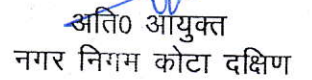 अति0 आयुक्त
नगर निगम कोटा दक्षिण